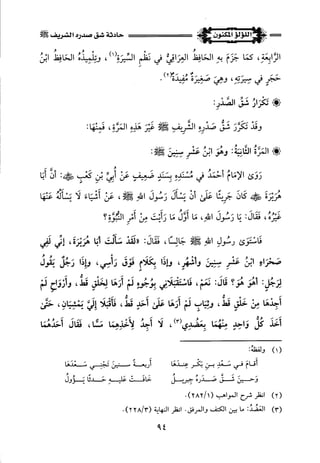 اللؤلؤ المكنون
حادثة شق صدره الشريف ﷺ
الرَّابِعَةِ، كَمَا جَزَمَ بِهِ الحَافِظُ العِرَاقِيُّ فِي نَظْمِ السِّيرَةِ(١)، وتِلْمِيذُهُ الحَافِظُ ابنُ
حَجَرٍ في سِيرَتِهِ، وهِيَ صَغِيرَةٌ مُفِيدَةٌ(٢).
تَكْرَارُ شَقِّ الصَّدْرِ:
وقَدْ تَكَرَّرَ شَقُّ صَدْرِهِ الشَّرِيفِ ﷺ غَيْرَ هَذِهِ المَرَّةِ، فَمِنْهَا:
المَرَّةُ الثَّانِيَةُ: وهُوَ ابْنُ عَشْرِ سِنِينَ ﷺ:
رَوَى الإِمَامُ أحْمَدُ فِي مُسْنَدِهِ بِسَنَدٍ ضَعِيفٍ عَنْ أُبَيِّ بنِ كَعْبٍ ﷺ: أنَّ أبَا
هُرَيْرَةَ ﷺ كَانَ جَرِيئًا عَلَى أنْ يَسْأَلَ رَسُولَ اللهِ ﷺ، عَنْ أشْيَاءَ لَا يَسْأَلُهُ عَنْهَا
غَيْرُهُ، فَقَالَ: يَا رَسُولَ اللهِ، مَا أوَّلُ مَا رَأَيْتَ مِنْ أمْرِ النُّبُوَّةِ؟
فَاسْتَوَى رَسُولُ اللهِ ﷺ جَالِسًا، فَقَالَ: «لَقَدْ سَأَلْتَ أبَا هُرَيْرَةَ، إنِّي لَفِي
صَحْرَاءَ ابنُ عَشْرِ سِنِينَ وأشْهُرٍ، وإذَا بِكَلَامٍ فَوْقَ رَأْسِي، وإذَا رَجُلٌ يَقُولُ
لِرَجُلٍ: أهُوَ هُوَ؟ قَالَ: نَعَمْ، فَاسْتَقْبَلَانِي بِوُجُوهٍ لَمْ أرَهَا لِخَلْقٍ قَطُّ، وأرْوَاحٍ لَمْ
أجِدْهَا مِنْ خَلْقٍ قَطُّ، وثِيَابٍ لَمْ أرَهَا عَلَى أحَدٍ قَطُّ، فَأَقْبَلَا إِلَيَّ يَمْشِيَانِ، حَتَّى
أخَذَ كُلُّ وَاحِدٍ مِنْهُمَا بِعَضُدِي(٣)، لَا أجِدُ لِأَخْذِهِمَا مَسًّا، فَقَالَ أحَدُهُمَا
(١) ولفظه:
أقـامَ في سَعْدِ بنِ بَكْرٍ عِنْدَهَا أربعـةَ سـنين تَجْنِـي سَـعْدَهَا
وَحِـينَ شُـقَّ صَـدْرُهُ جِبْرِيـلُ خَافَـتْ عَلَيْـهِ حَـدَثًا يَـؤُولُ
(٢) انظر شرح المواهب (٢٨٢/١).
(٣) العَضُدُ: ما بين الكتف والمرفق. انظر النهاية (٢٢٨/٣).
٩٤